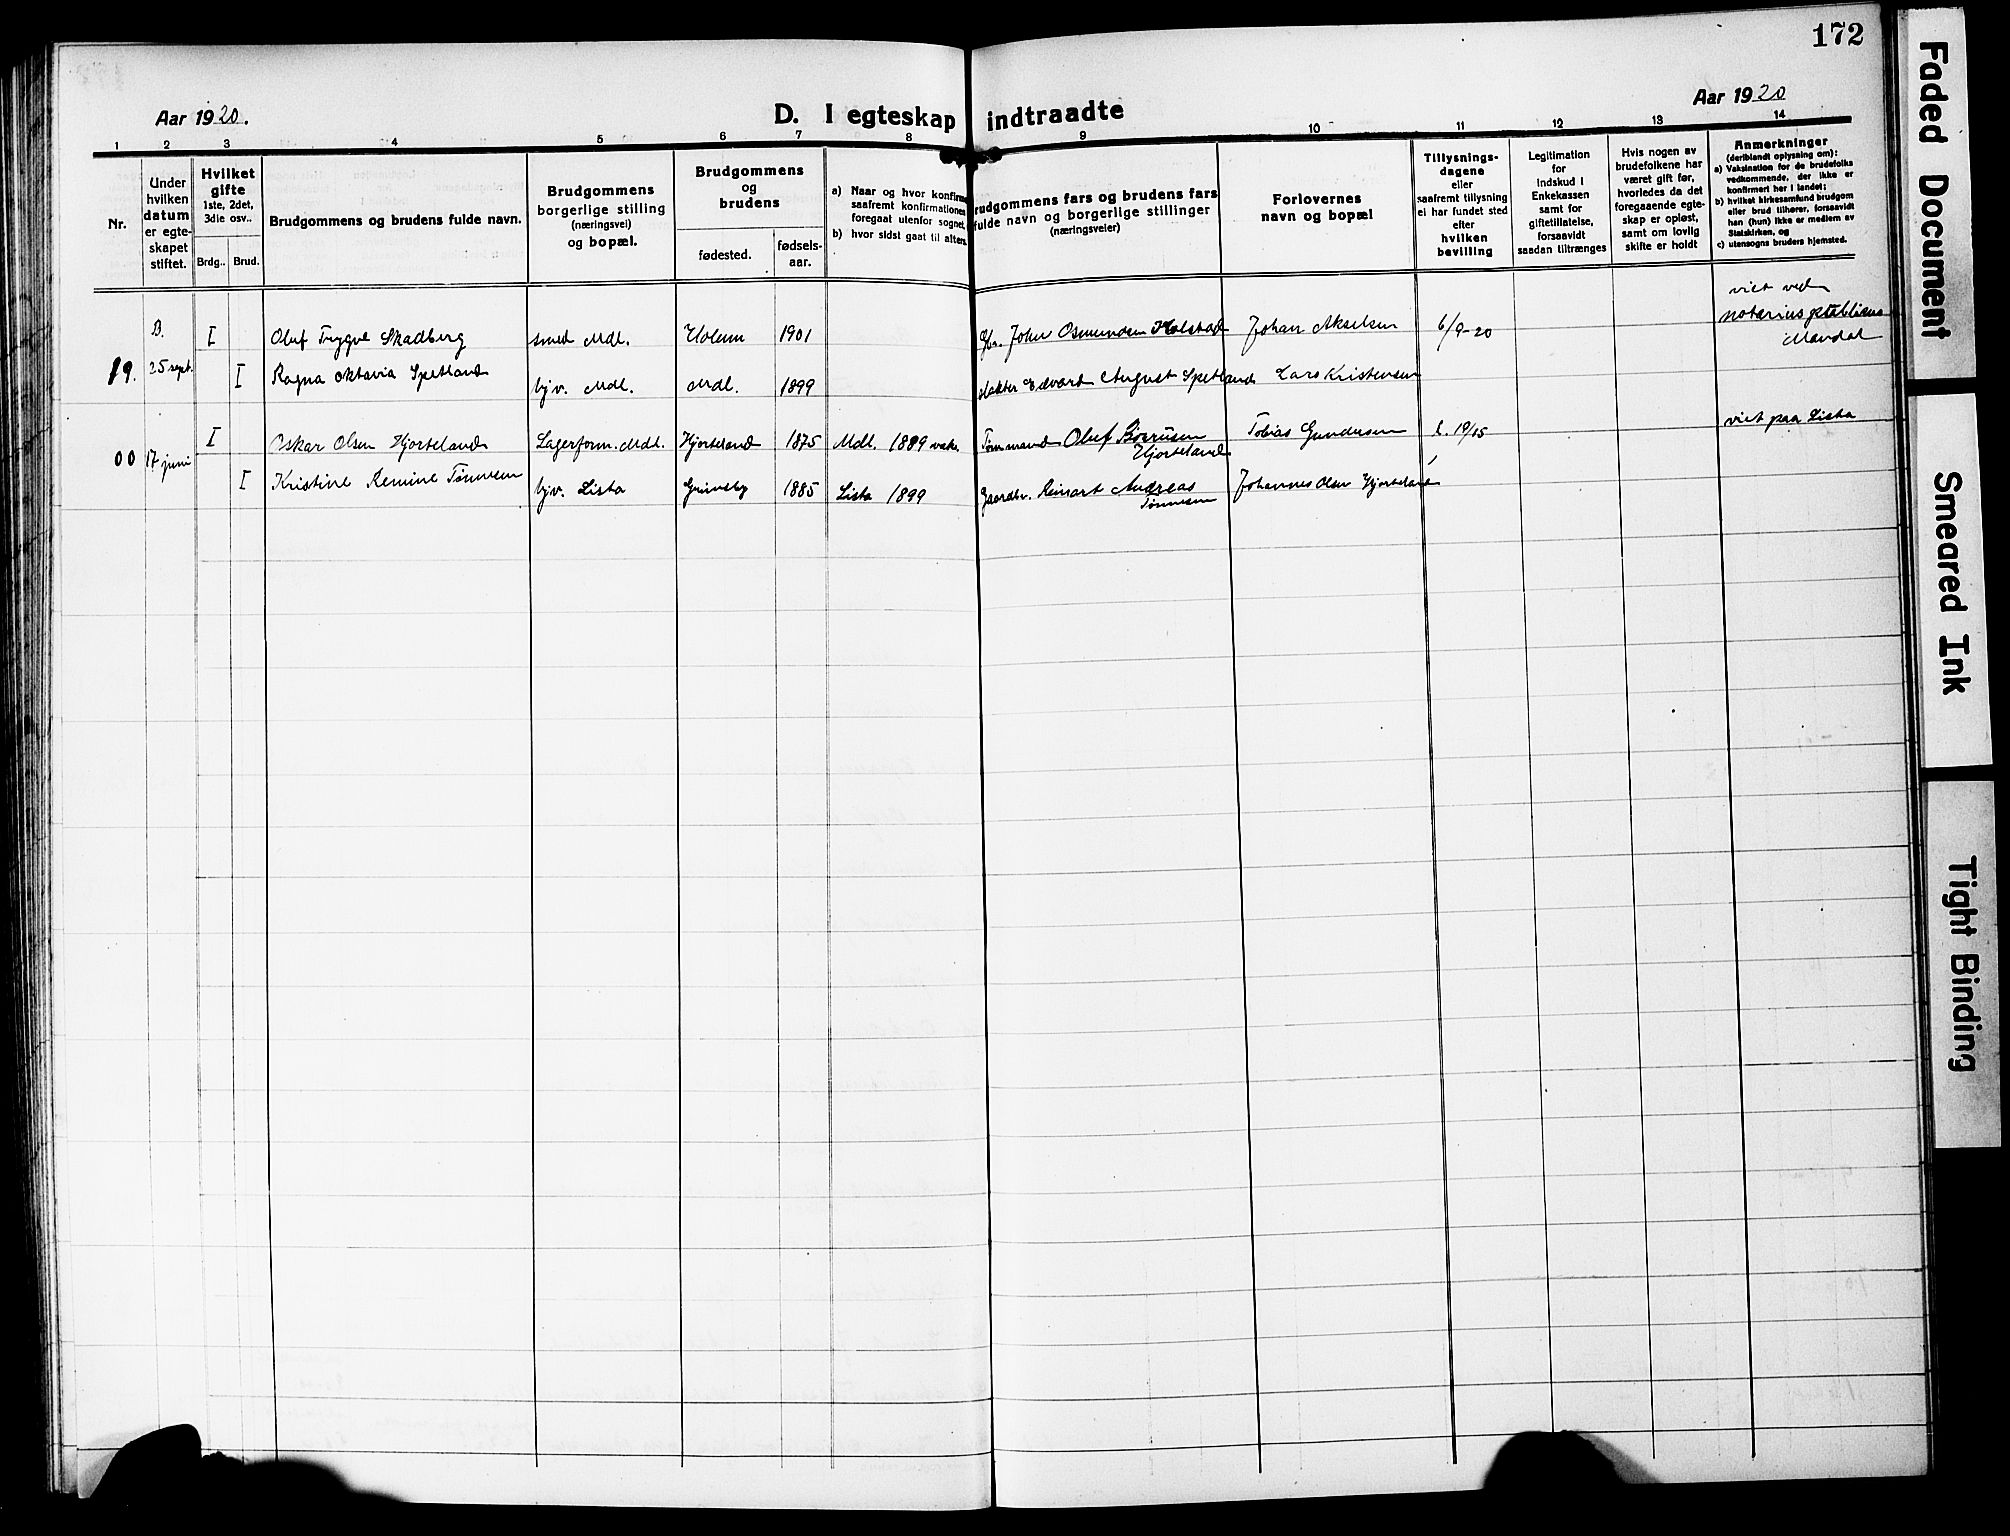 172
Aar 1920.
D. I egteskap indtraadte
Aar 1920
1 2 3 4 5 6 7 8 9 10 11 12 13 14
Nr.
Under
hvilken
datum
er egte-
skapet
stiftet.
Hvilket
gifte
1ste, 2det,
3die osv..
Brdg.. Brud.
Brudgommens og brudens fulde navn.
Brudgommens
borgerlige stilling
(næringsvei)
og bopæl.
Brudgommens
og
brudens
fødested.
fødsels-
aar.
a) Naar og hvor konfirme
saafremt konfirmationen
foregaat utenfor sognet,
b) hvor sidst gaat til alters.
rudgommens fars og brudens fars
fulde navn og borgerlige stillinger
(næringsveier)
Forlovernes
navn og bopæl
Tillysnings-
dagene
eller
saafremt tillysning
ei har fundet sted
efter
hvilken
bevilling
Legitimation
for
Indskud i
Enkekassen
samt for
giftetillatelse,
forsaavidt
saadan tiltrænges
Hvis nogen av
brudefolkene har
været gift før,
hvorledes da det
foregaaende egte-
skap er opløst,
samt om lovlig
skifte er holdt
Anmerkninger
(deriblandt oplysning om):
a) Vaksination for de brudefolks
vedkommende, der ikke er
konfirmert her i landet;
b) hvilket kirkesamfund brudgom
eller brud tilhører, forsaavidt
han (hun) ikke er medlem av
Statskirken, og
c) utensogns bruders hjemsted.
B. I Oluf Trygve Skadberg smed Mdl. Holum 1901 Gbr. John Osmundsen Holstad Johan Akselsen 6/9-20
viet ved
notarius publicus
Mandal
19. 25 sept. I Ragna Oktavia Spetland hjv. Mdl. Mdl. 1899 Edvard August Spetland Lars Kristensen
I Oskar Olsen Hjorteland Lagerform. Mdl. Hjorteland 1875 Mdl. 1889 Tømmand Oluf Børrusen
Hjorteland
Tobias Gundersen l. 19/15 viet paa Lista
00 17 juni I Kristine Remine Tønnesen hjv. Lista Grimsby 1885 Lista 1899 Gaardbr. Reinart Andreas
Tønnesen
Johannes Olsen Hjorteland
Faded Document
Smeared Ink
Tight Binding